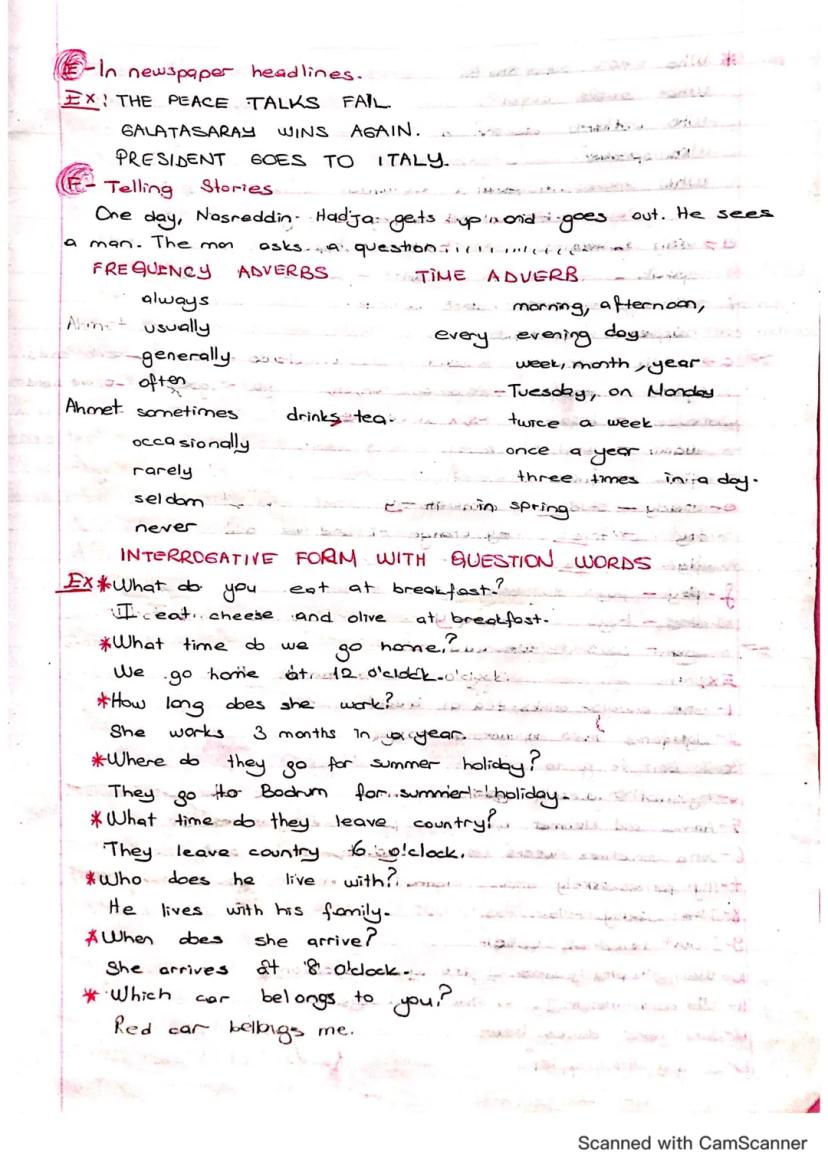 E-In newspaper headlines.
Ex: THE PEACE TALKS FAIL
GALATASARAY WINS AGAIN.
PRESIDENT GOES TO ITALY.
F- Telling Stories
One day, Nasreddin Hadja gets up and goes out. He sees
a man. The man asks a question...........
FREQUENCY ADVERBS TIME ADVERB
always morning, afternoon,
Ahmet usually every evening day
generally week, month, year
often -Tuesday, on Monday
Ahmet sometimes drinks tea. twice a week
occasionally once a year
rarely three times in a day.
seldom in spring
never
INTERROGATIVE FORM WITH QUESTION WORDS
Ex *What do you eat at breakfast?
I eat cheese and olive at breakfast.
*What time do we go home?
We go home at 12 o'clock.
*How long does she work?
She works 3 months in a year.
*Where do they go for summer holiday?
They go to Bodrum for summer holiday.
*What time do they leave country?
They leave country 6 o'clock.
*Who does he live with?
He lives with his family.
*When does she arrive?
She arrives at 8 o'clock.
*Which car belongs to you?
Red car belongs me.
Scanned with CamScanner